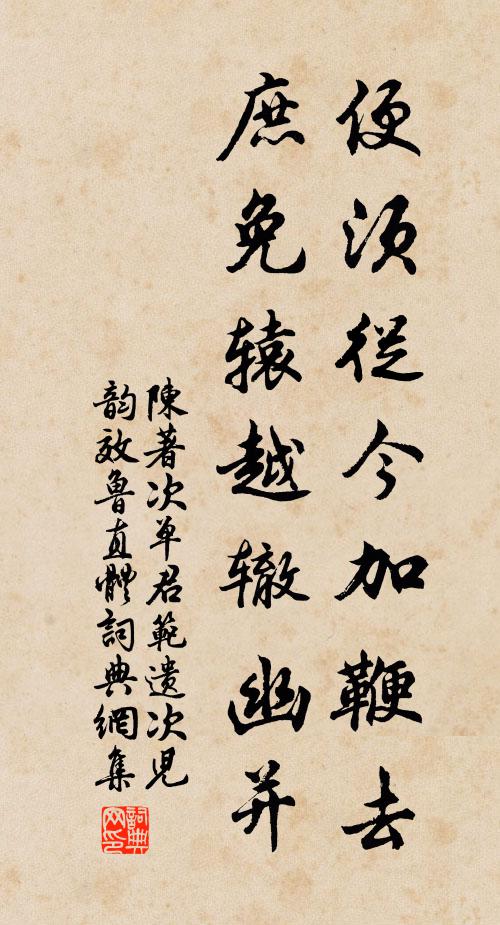 便須從今加鞭去
庶免辕越辙幽并
陳著次单君範遗次児
韵效魯直體詞典網集
詞典网印